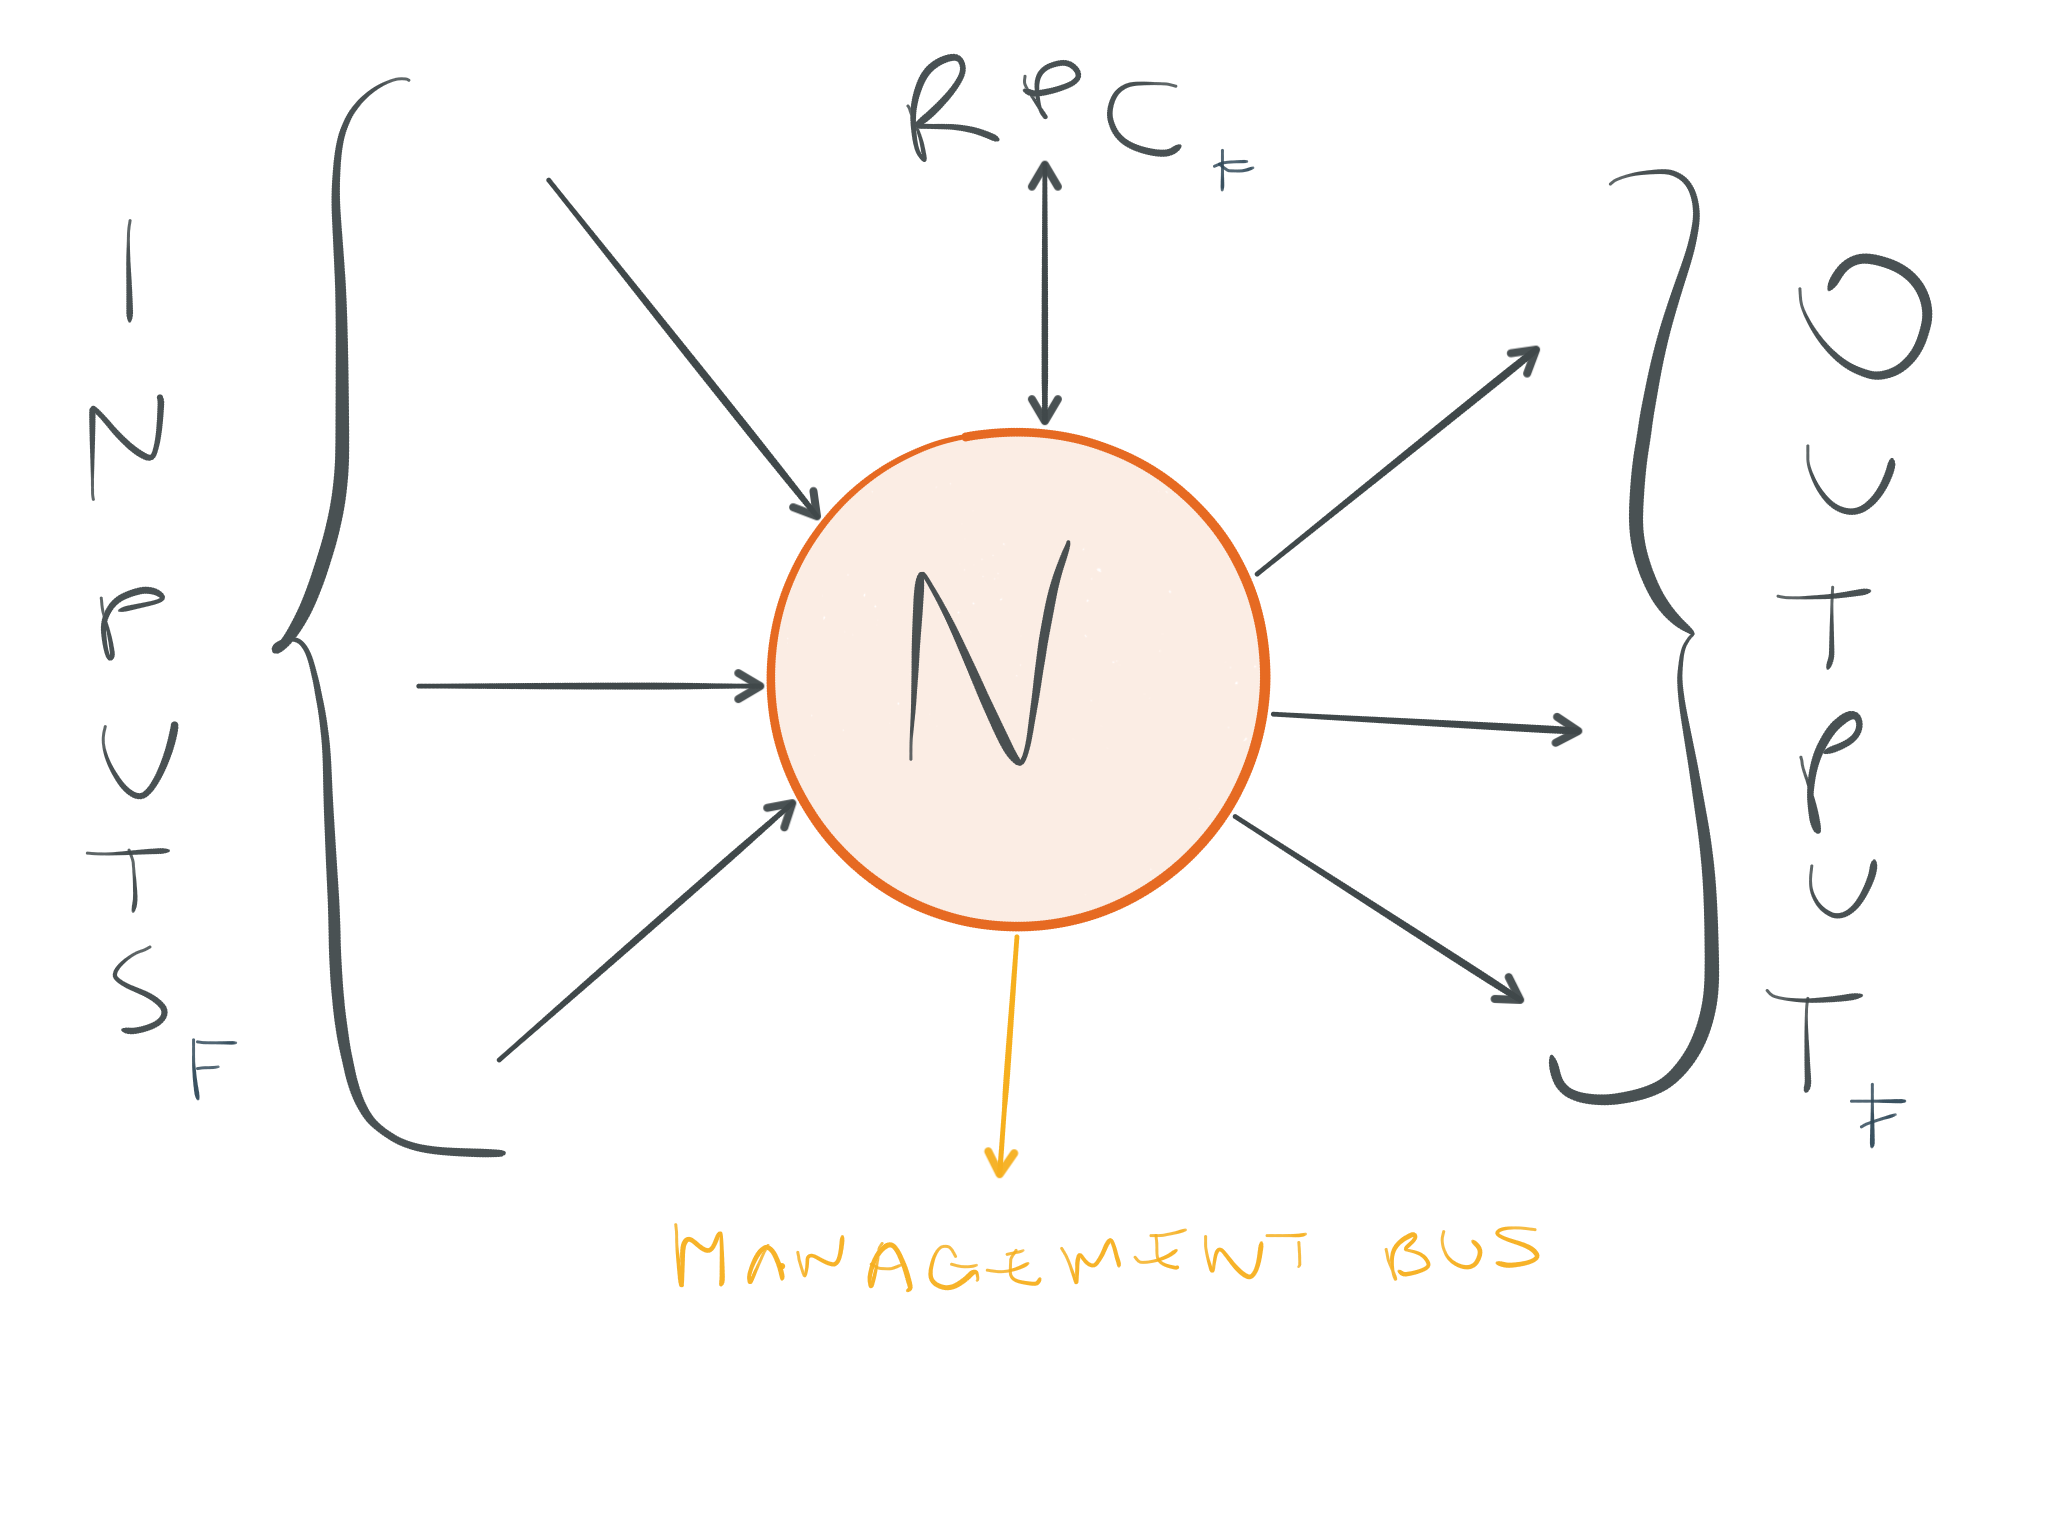 RPC F
INPUTS F
N
OUTPUT F
MANAGEMENT BUS